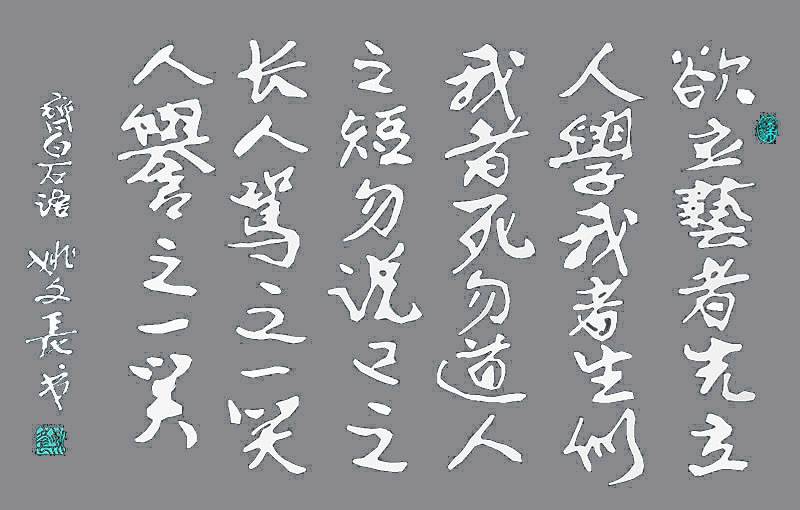 欲立藝者先立
人學我者生似
我者死勿道人
之短勿说己之
长人骂之一笑
人譽之一笑
齊白石语 姚文長书